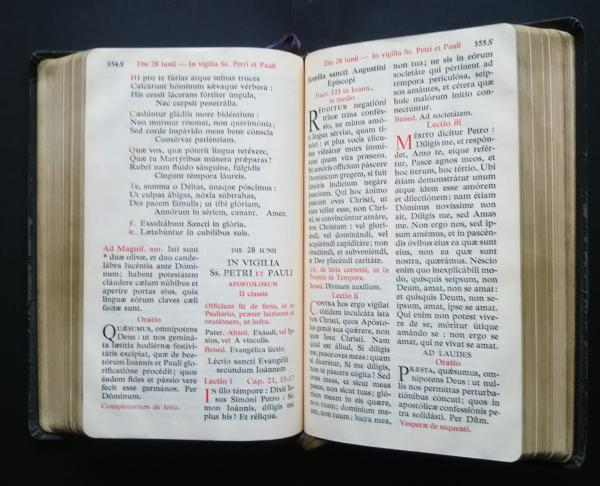 354 S
Die 28 iunii — In vigilia Ss. Petri et Pauli
Hi pro te fúrias atque minas truces
Calcárunt hóminum sævaque vérbera :
His cessit lácerans fórtiter úngula,
Nec carpsit penetrália.
Cædúntur gládiis more bidéntium :
Non murmur résonat, non querimónia;
Sed corde impávido mens bene cónscia
Consérvat patiéntiam.
Quæ vox, quæ póterit lingua retéxere,
Quæ tu Martýribus múnera prǽparas?
Rubri nam flúido sánguine, fúlgidis
Cingunt témpora láureis.
Te, summa o Déitas, únaque póscimus :
Ut culpas ábigas, nóxia súbtrahas,
Des pacem fámulis; ut tibi glóriam,
Annórum in sériem, canant. Amen.
℣. Exsultábunt Sancti in glória.
℟. Lætabúntur in cubílibus suis.
Ad Magnif. ant. Isti sunt
* duæ olívæ, et duo cande-
lábra lucéntia ante Dómi-
num; habent potestátem
cláudere cælum núbibus et
aperíre portas eius, quia
linguæ eórum claves cæli
factæ sunt.
Oratio
QUǼSUMUS, omnípotens
Deus : ut nos geminá-
ta lætítia hodiérnæ festivi-
tátis excípiat, quæ de bea-
tórum Ioánnis et Pauli glo-
rificatióne procédit; quos
éadem fides et pássio vere
fecit esse germános. Per
Dóminum.
Completorium de feria.
DIE 28 IUNII
IN VIGILIA
Ss. PETRI ET PAULI
APOSTOLORUM
II classis
Officium fit de feria, ut in
Psalterio, præter lectiones et
orationem, ut infra.
Pater. Absol. Exáudi, vel Ip-
síus, vel A vínculis.
Bened. Evangélica léctio.
Léctio sancti Evangélii
secúndum Ioánnem
Lectio i Cap. 21, 15-17
IN illo témpore : Dixit Ie-
sus Simóni Petro : Si-
mon Ioánnis, díligis me
plus his? Et réliqua.
Die 28 iunii — In vigilia Ss. Petri et Pauli
355 S
Homilía sancti Augustíni
Epíscopi
Tract. 123 in Ioann.,
in medio
REDDITUR negatióni
trinæ trina conféssio,
ne minus amó-
ri lingua sérviat, quam ti-
móri : et plus vocis elicuís-
se videátur mors immi-
nens quam vita præsens.
Sit amóris offícium páscere
Domínicum gregem, si fuit
timóris indícium negáre
pastórem. Qui hoc ánimo
pascunt oves Christi, ut
suas velint esse, non Chri-
sti, se convincúntur amáre,
non Christum : vel glori-
ándi, vel dominándi, vel
acquiréndi cupiditáte; non
obœdiéndi, et subveniéndi,
et Deo placéndi caritáte.
de feria currenti, ut in
Proprio de Tempore.
Bened. Divínum auxílium.
Lectio ii
CONTRA hos ergo vígilat
tótidem inculcáta ista
vox Christi, quos Apósto-
lus gemit sua quǽrere, non
quæ Iesu Christi. Nam
quid est áliud, Si díligis
me, pasce oves meas : quam
si dicerétur, Si me díligis,
non te páscere cógita? Sed
oves meas, et sicut meas
pasce, non sicut tuas; gló-
riam meam in eis quære,
non tuam; domínium me-
um, non tuum; lucra mea,
non tua; ne sis in eórum
societáte qui pértinent ad
témpora periculósa, seíp-
sos amántes, et cétera quæ
huic malórum inítio con-
nectúntur.
Bened. Ad societátem.
Lectio iii
MÉRITO dícitur Petro :
Díligis me, et respón-
det, Amo te, eíque refér-
tur, Pasce agnos meos, et
hoc íterum, hoc tértio. Ubi
étiam demonstrátur unum
atque idem esse amórem
et dilectiónem; nam étiam
Dóminus novíssime non
ait, Díligis me, sed Amas
me. Non ergo nos, sed ip-
sum amémus, et in pascén-
dis óvibus eius ea quæ sunt
eius, non ea quæ sunt
nostra, quærámus. Néscio
enim quo inexplicábili mo-
do, quisquis seípsum, non
Deum, amat, non se amat;
et quisquis Deum, non se-
ípsum, amat, ipse se amat.
Qui enim non potest víve-
re de se, móritur útique
amándo se : non ergo se
amat, qui ne vivat se amat.
AD LAUDES
Oratio
PRÆSTA, quǽsumus, om-
nípotens Deus : ut nul-
lis nos permíttas perturba-
tiónibus cóncuti; quos in
apostólicæ confessiónis pe-
tra solidásti. Per Dñm.
Vesperæ de sequenti.